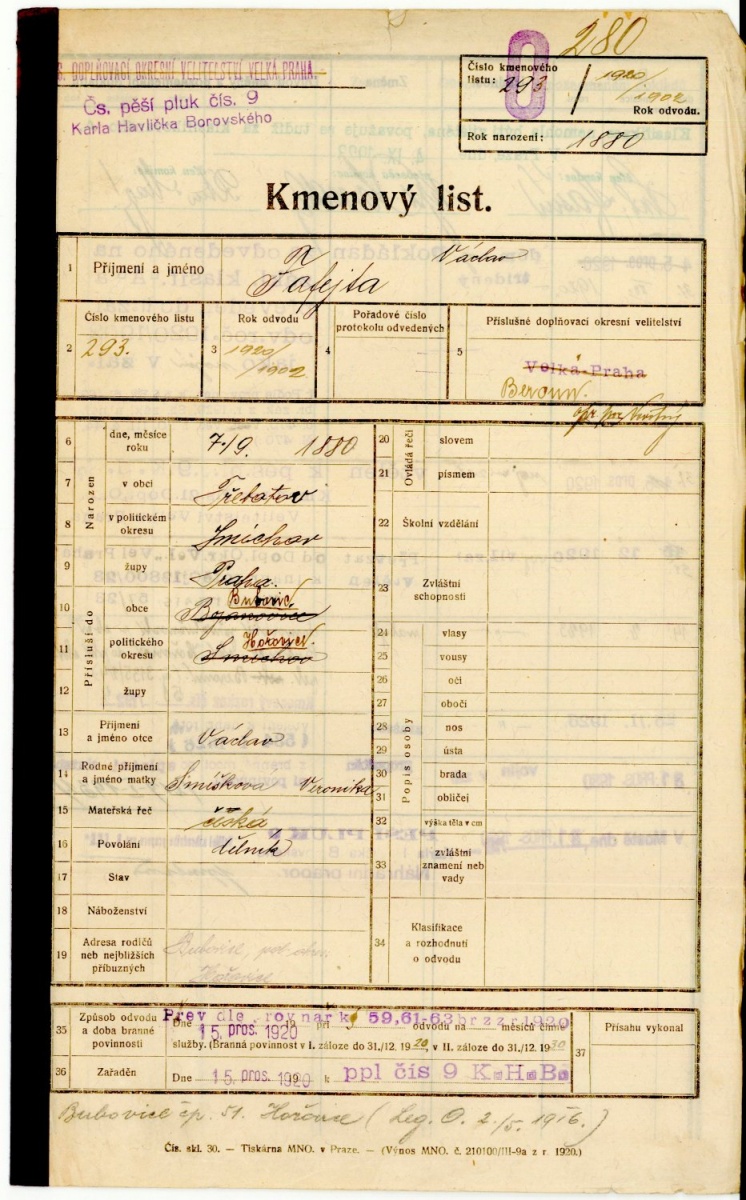 280
S. DOPLŇOVACÍ OKRESNÍ VELITELSTVÍ VELKÁ PRAHA.
Čs. pěší pluk čís. 9
Karla Havlíčka Borovského
Číslo kmenového
listu: 293 / 1920/1902
0
Rok odvodu.
Rok narození: 1880
Kmenový list.
1 Příjmení a jméno Tafejta Václav
2 Číslo kmenového listu 293.
3 Rok odvodu 1920/1902
4 Pořadové číslo
protokolu odvedených
5 Příslušné doplňovací okresní velitelství
Velká Praha
Beroun.
Narozen
6 dne, měsíce
roku 7/9. 1880
7 v obci Třebotov
8 v politickém
okresu Smíchov
9 župy Praha.
Přísluší do
10 obce Bubovic. Bojanovice
11 politického
okresu Hořovice. Smíchov
12 župy
13 Příjmení
a jméno otce Václav
14 Rodné příjmení
a jméno matky Smíškova Veronika
15 Mateřská řeč česká
16 Povolání dělník
17 Stav
18 Náboženství
19 Adresa rodičů
neb nejbližších
příbuzných Bubovice, pol. okr.
Hořovice
Ovládá řeči
20 slovem
21 písmem
22 Školní vzdělání
23 Zvláštní
schopnosti
Popis osoby
24 vlasy
25 vousy
26 oči
27 obočí
28 nos
29 ústa
30 brada
31 obličej
32 výška těla v cm
33 zvláštní
znamení neb
vady
34 Klasifikace
a rozhodnutí
o odvodu
35 Způsob odvodu
a doba branné
povinnosti
Prev dle rovnar k § 59,61-63 br z z r 1920
Dne 15. pros. 1920 při odvodu na měsíců činné
služby. (Branná povinnost v I. záloze do 31./12. 1920, v II. záloze do 31./12. 1930
36 Zařaděn Dne 15. pros. 1920 k ppl čís 9 K.H.B.
37 Přísahu vykonal
Bubovice čp. 51. Hořovice (Leg. O. 2./5. 1916.)
Čís. skl. 30. — Tiskárna MNO. v Praze. — (Výnos MNO. č. 210100/III-9a z r. 1920.)